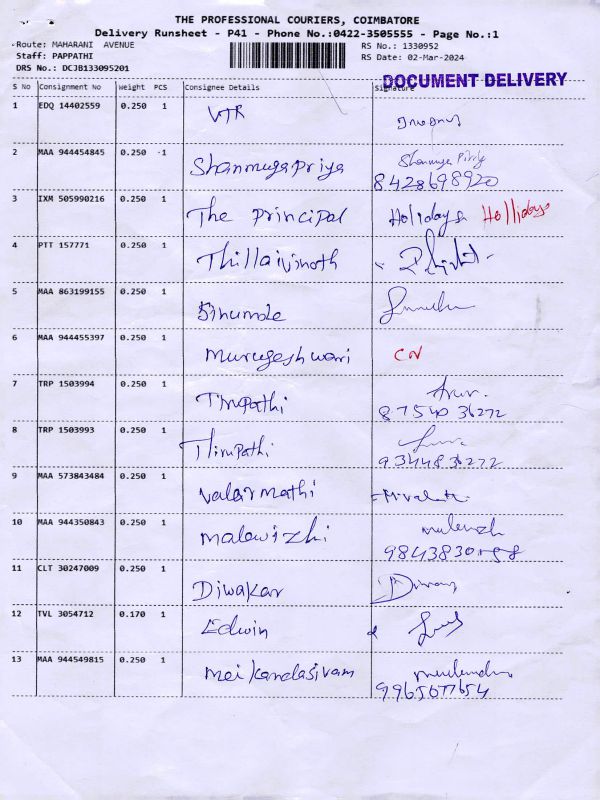 THE PROFESSIONAL COURIERS, COIMBATORE
Delivery Runsheet - P41 - Phone No.:0422-3505555 - Page No.:1
Route: MAHARANI AVENUE RS No.: 1330952
Staff: PAPPATHI RS Date: 02-Mar-2024
DRS No.: DCJB133095201
DOCUMENT DELIVERY
S No Consignment No Weight PCS Consignee Details Signature
1 EDQ 14402559 0.250 1 VTR
2 MAA 944454845 0.250 1 Shanmugapriya Shanmuga Priya
8428698920
3 IXM 505990216 0.250 1 The principal Holidays Hollidays
4 PTT 157771 0.250 1 Thillaivinoth
5 MAA 863199155 0.250 1
6 MAA 944455397 0.250 1 Murugeshwari CN
7 TRP 1503994 0.250 1 Tirupathi
87540 36272
8 TRP 1503993 0.250 1 Thirupathi
9344836272
9 MAA 573843484 0.250 1 Valarmathi
10 MAA 944350843 0.250 1 Malavizhi
11 CLT 30247009 0.250 1 Diwakar
12 TVL 3054712 0.170 1 Edwin
13 MAA 944549815 0.250 1 Meikandasivam